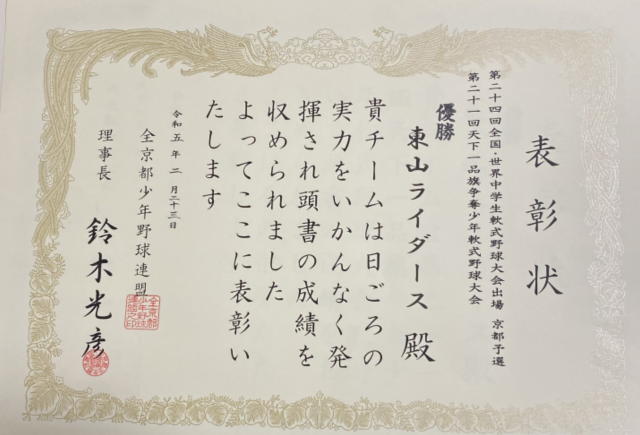 表彰状
第二十四回全国・世界中学生軟式野球大会出場 京都予選
第二十一回天下一品旗争奪少年軟式野球大会
優勝
東山ライダース 殿
貴チームは日ごろの
実力をいかんなく発
揮され頭書の成績を
収められました
よってここに表彰い
たします
令和五年二月二十三日
全京都少年野球連盟
理事長 鈴木光彦
全京都
少年野球
連盟之印